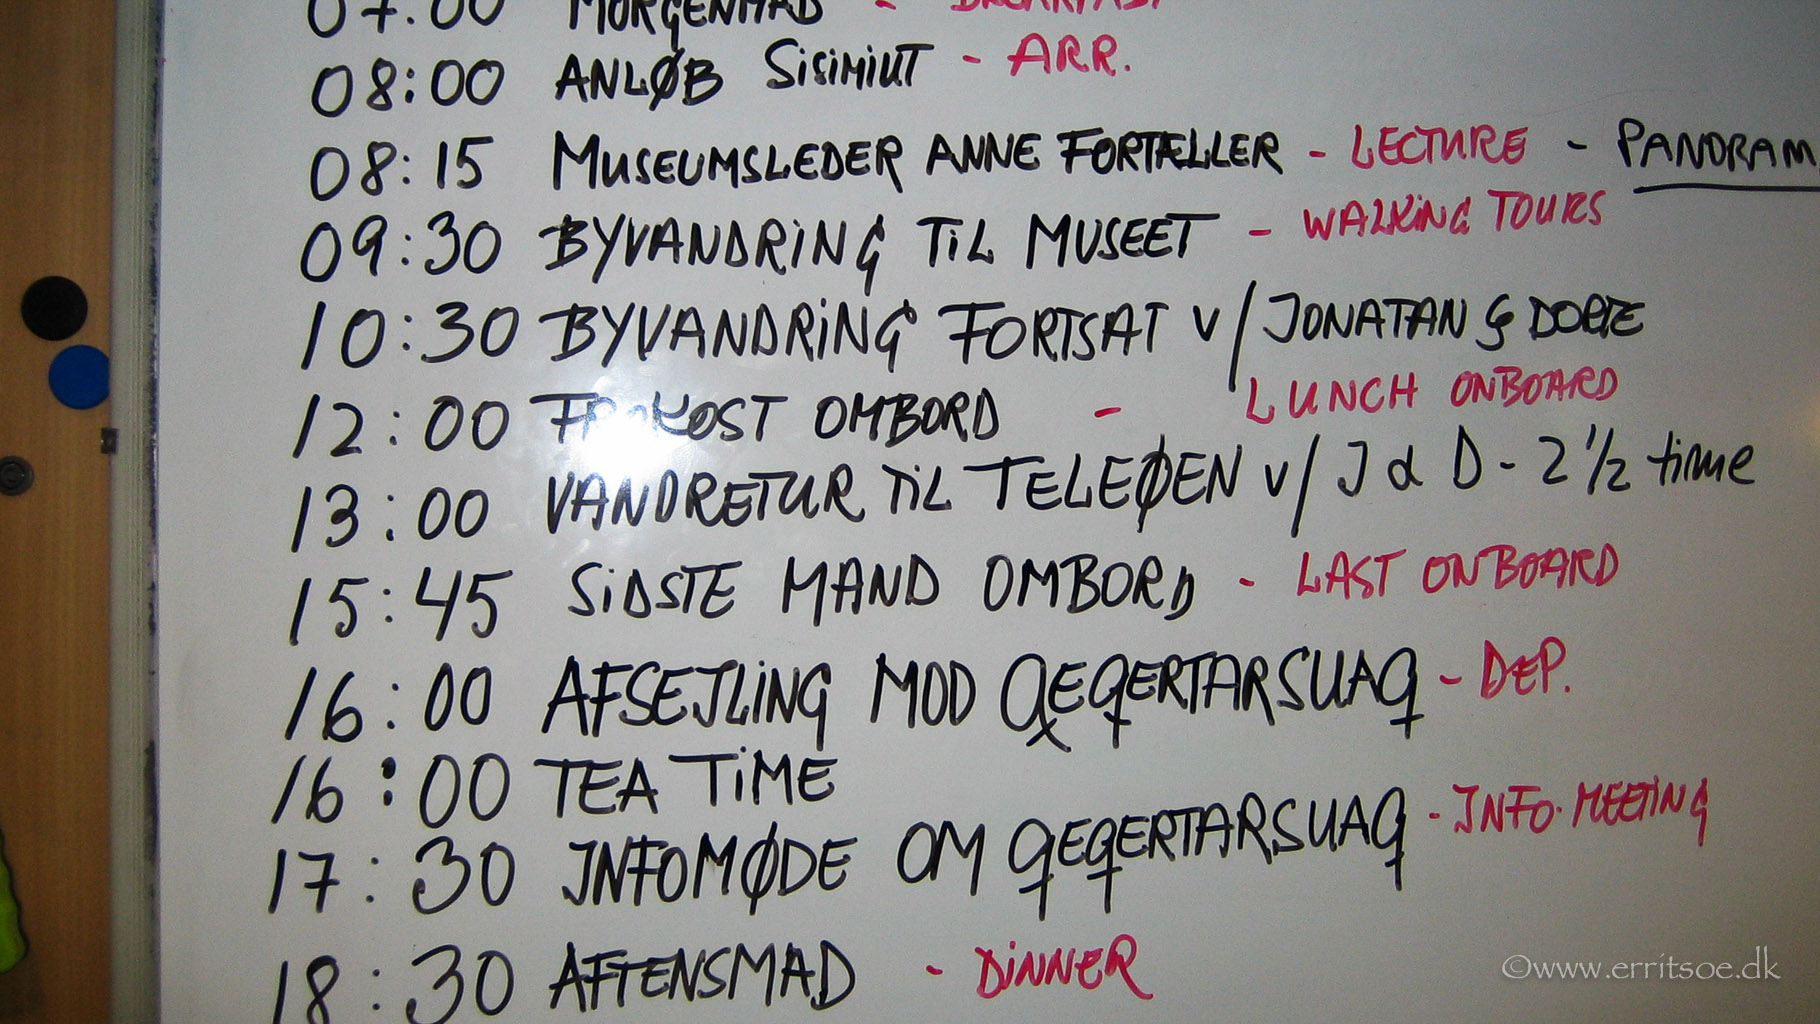 07:00 MORGENMAD - BREAKFAST
08:00 ANLØB SISIMIUT - ARR.
08:15 MUSEUMSLEDER ANNE FORTÆLLER - LECTURE - PANORAM
09:30 BYVANDRING TIL MUSEET - WALKING TOURS
10:30 BYVANDRING FORTSAT V/JONATAN & DORTE
12:00 FROKOST OMBORD - LUNCH ONBOARD
13:00 VANDRETUR TIL TELEØEN V/J & D - 2 1/2 time
15:45 SIDSTE MAND OMBORD - LAST ONBOARD
16:00 AFSEJLING MOD QEQERTARSUAQ - DEP.
16:00 TEA TIME
17:30 INFOMØDE OM QEQERTARSUAQ - INFO. MEETING
18:30 AFTENSMAD - DINNER
©www.erritsoe.dk